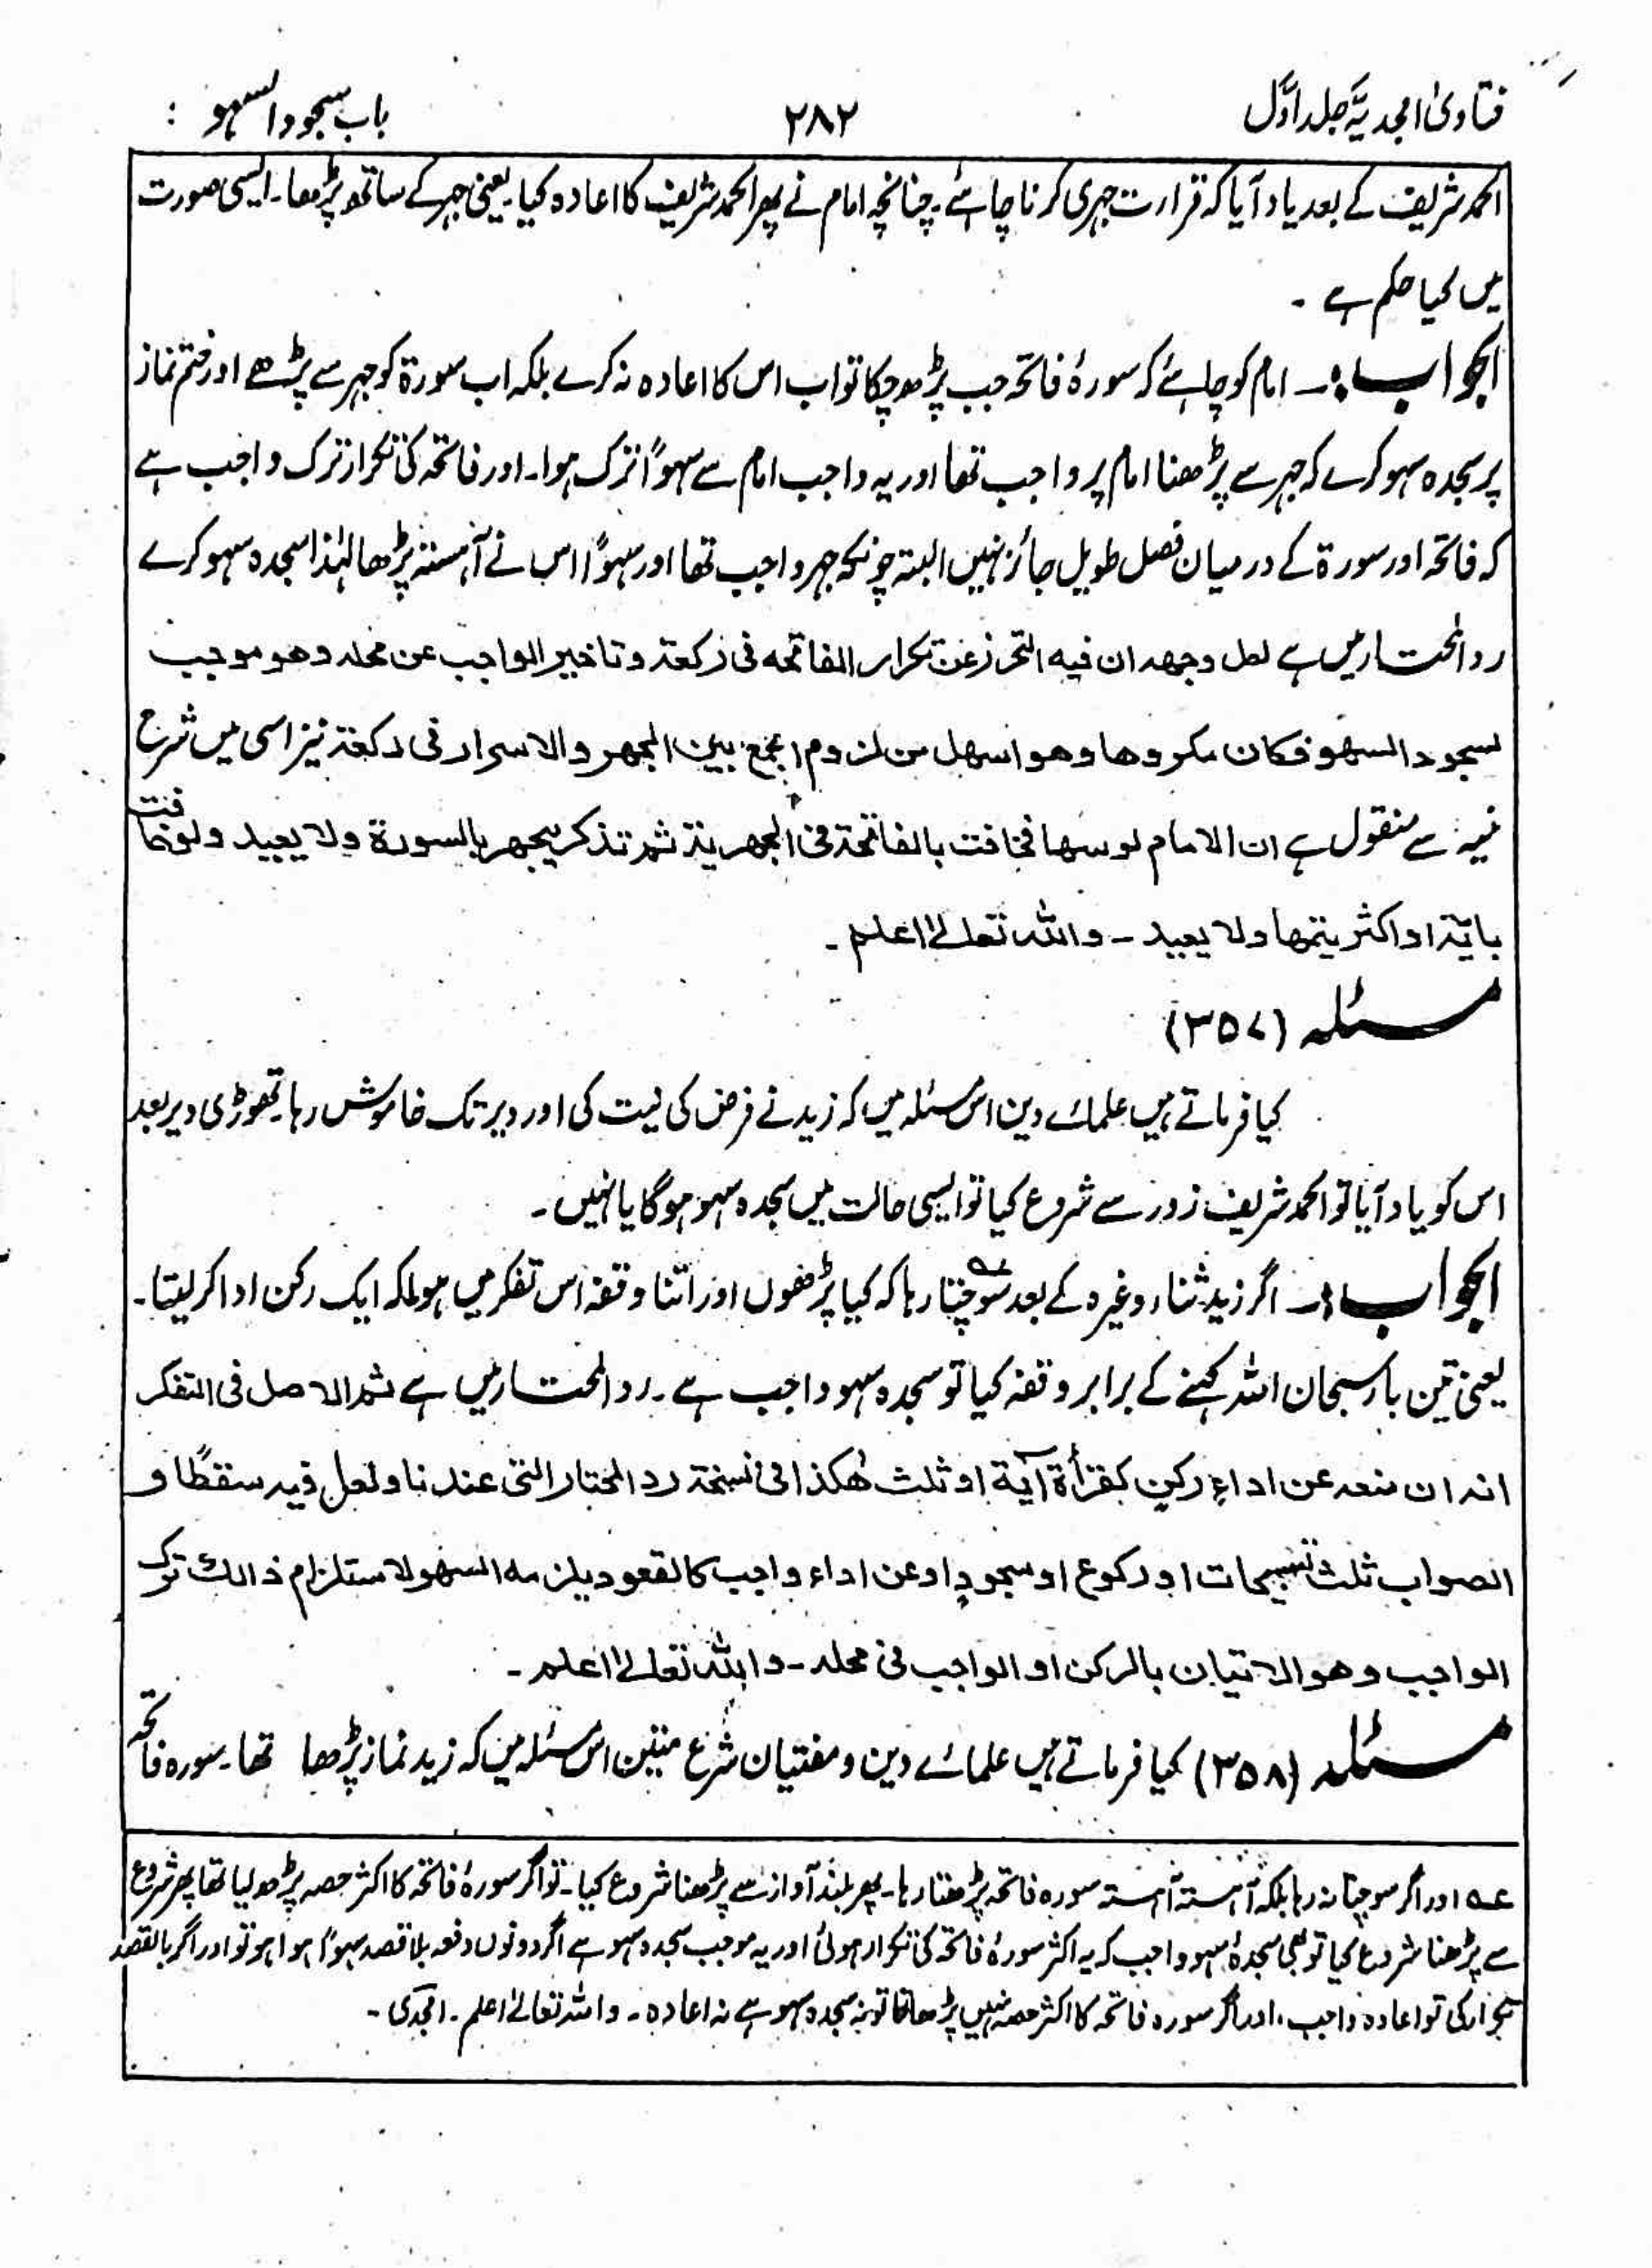 فتاویٰ امجدیہ جلد اوّل
۲۸۲
باب سجود السہو :
الحمد شریف کے بعد یاد آیا کہ قرارت جہری کرنا چاہئے۔ چنانچہ امام نے پھر الحمد شریف کا اعادہ کیا۔ یعنی جہر کے ساتھ پڑھا۔ ایسی صورت
میں کیا حکم ہے ۔
الجواب :۔ امام کو چاہئے کہ سورۂ فاتحہ جب پڑھ چکا تو اب اس کا اعادہ نہ کرے بلکہ اب سورۃ کو جہر سے پڑھے اور ختم نماز
پر سجدہ سہو کرے کہ جہر سے پڑھنا امام پر واجب تھا اور یہ واجب امام سے سہوًا ترک ہوا۔ اور فاتحہ کی تکرار ترک واجب ہے
کہ فاتحہ اور سورۃ کے درمیان فصل طویل جائز نہیں البتہ چونکہ جہر واجب تھا اور سہوًا اس نے آہستہ پڑھا لہٰذا سجدہ سہو کرے
ردالمحتار میں ہے لعل وجھہ ان فیہ التحرز عن تکرار الفاتحہ فی رکعۃ و تاخیر الواجب عن محلہ وھو موجب
لسجود السھو فکان مکروھا وھو اسھل من لزوم الجمع بین الجھر والاسرار فی رکعۃ نیز اسی میں شرح
منیہ سے منقول ہے ان الامام لو سھا فخافت بالفاتحۃ فی الجھریۃ ثم تذکر یجھر بالسورۃ ولا یعید ولو خافت
بایۃ او اکثر یتمھا ولا یعید ۔ واللہ تعالےٰ اعلم ۔
مسئلہ (۳۵۷)
کیا فرماتے ہیں علمائے دین اس مسئلہ میں کہ زید نے فرض کی نیت کی اور دیر تک خاموش رہا۔ تھوڑی دیر بعد
اس کو یاد آیا تو الحمد شریف زور سے شروع کیا تو ایسی حالت میں سجدہ سہو ہوگا یا نہیں ۔
الجواب :۔ اگر زید ثناء وغیرہ کے بعد سوچتا رہا کہ کیا پڑھوں اور اتنا وقفہ اس تفکر میں ہوا کہ ایک رکن ادا کر لیتا ۔
یعنی تین بار سبحان اللہ کہنے کے برابر وقفہ کیا تو سجدہ سہو واجب ہے ۔ ردالمحتار میں ہے ثم الاصل فی التفکر
انہ ان منعہ عن اداءِ رکن کقرأۃ آیۃ او ثلث ھٰکذا فی نسخۃ رد المحتار التی عندنا و لعل فیہ سقطًا و
الصواب ثلث تسبیحات او رکوع او سجودٍ او عن اداء واجب کالقعود یلزمہ السھو لاستلزام ذالک ترک
الواجب وھو الاتیان بالرکن او الواجب فی محلہ ۔ واللہ تعالےٰ اعلم ۔
مسئلہ (۳۵۸) کیا فرماتے ہیں علمائے دین و مفتیان شرع متین اس مسئلہ میں کہ زید نماز پڑھا تھا۔ سورہ فاتحہ
عہ اور اگر سوچتا نہ رہا بلکہ آہستہ آہستہ سورہ فاتحہ پڑھتا رہا۔ پھر بلند آواز سے پڑھنا شروع کیا۔ تو اگر سورۂ فاتحہ کا اکثر حصہ پڑھ لیا تھا پھر شروع
سے پڑھنا شروع کیا تو بھی سجدۂ سہو واجب کہ یہ اکثر سورۂ فاتحہ کی تکرار ہوئی اور یہ موجب سجدہ سہو ہے اگر دونوں دفعہ بلا قصد سہوًا ہوا ہو تو اور اگر بالقصد
تکرار کی تو اعادہ واجب، اور اگر سورہ فاتحہ کا اکثر حصہ نہیں پڑھا تھا تو نہ سجدہ سہو ہے نہ اعادہ ۔ واللہ تعالےٰ اعلم ۔ امجدی ۔